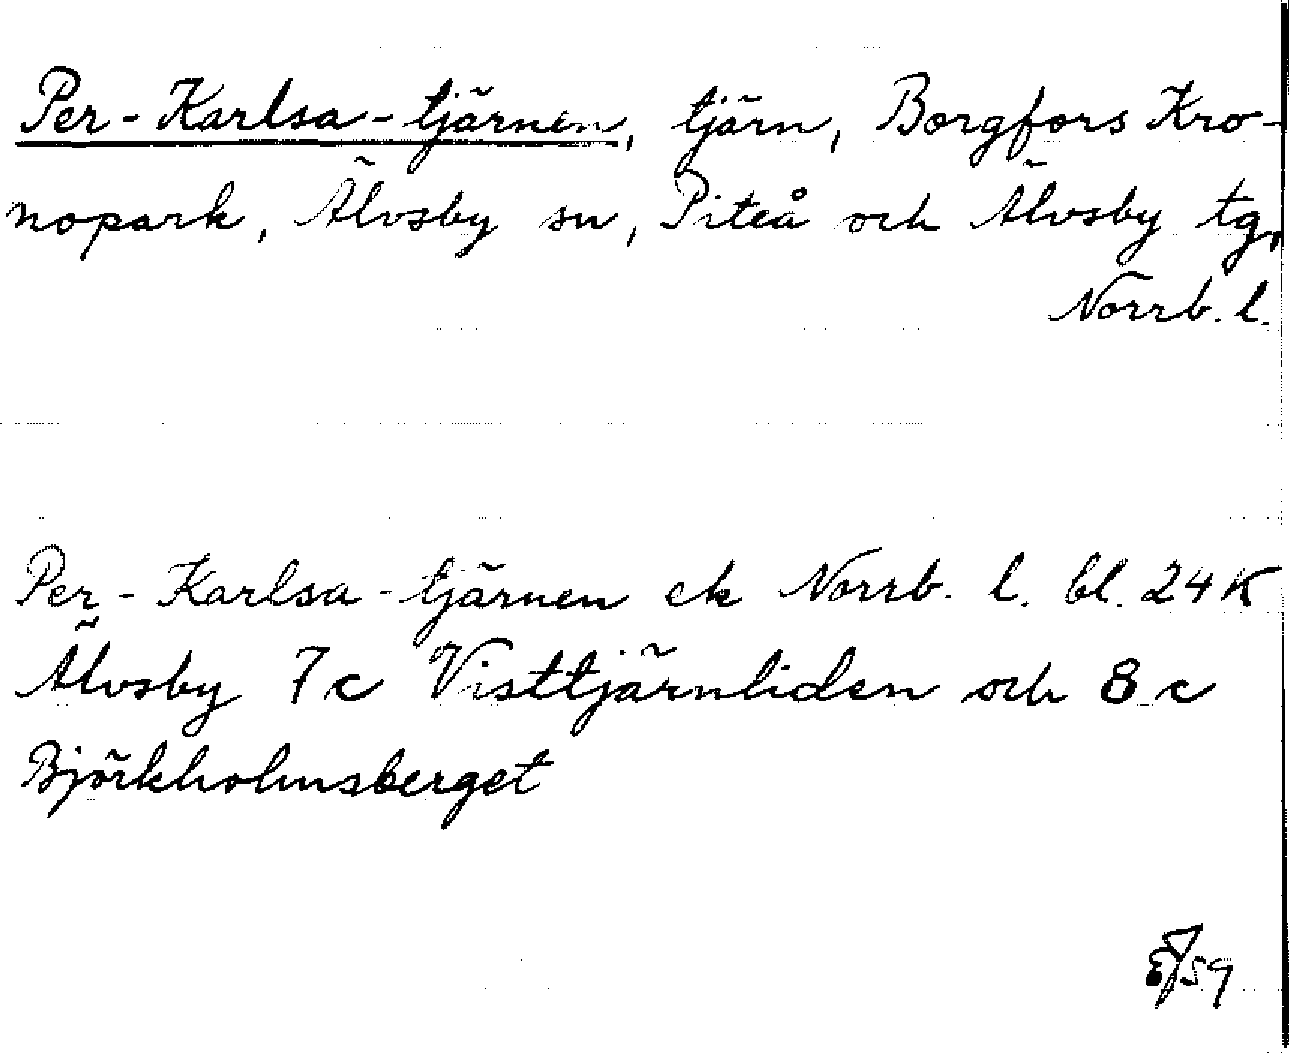 Per-Karlsa-tjärnen, tjärn, Borgfors Kro-
nopark, Älvsby sn, Piteå och Älvsby tg,
Norrb. l.
Per-Karlsa-tjärnen ek Norrb. l. bl. 24K
Älvsby 7c Visttjärnliden och 8c
Björkholmsberget
/59